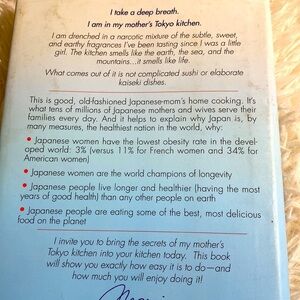 I take a deep breath.
I am in my mother's Tokyo kitchen.
I am drenched in a narcotic mixture of the subtle, sweet,
and earthy fragrances I've been tasting since I was a little
girl. The kitchen smells like the earth, the sea, and the
mountains...it smells like life.
What comes out of it is not complicated sushi or elaborate
kaiseki dishes.
This is good, old-fashioned Japanese-mom's home cooking. It's
what tens of millions of Japanese mothers and wives serve their
families every day. And it helps to explain why Japan is, by
many measures, the healthiest nation in the world, why:
• Japanese women have the lowest obesity rate in the devel-
oped world: 3% (versus 11% for French women and 34% for
American women)
• Japanese women are the world champions of longevity
• Japanese people live longer and healthier (having the most
years of good health) than any other people on earth
• Japanese people are eating some of the best, most delicious
food on the planet
I invite you to bring the secrets of my mother's
Tokyo kitchen into your kitchen today. This book
will show you exactly how easy it is to do—and
how much you will enjoy doing it!